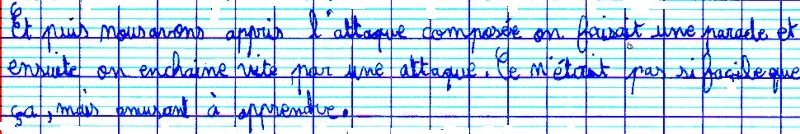 Et puis nous avons appris l'attaque composée on faisait une parade et
ensuite on enchaine vite par une attaque. Ce n'était pas si facile que
ça, mais amusant à apprendre.